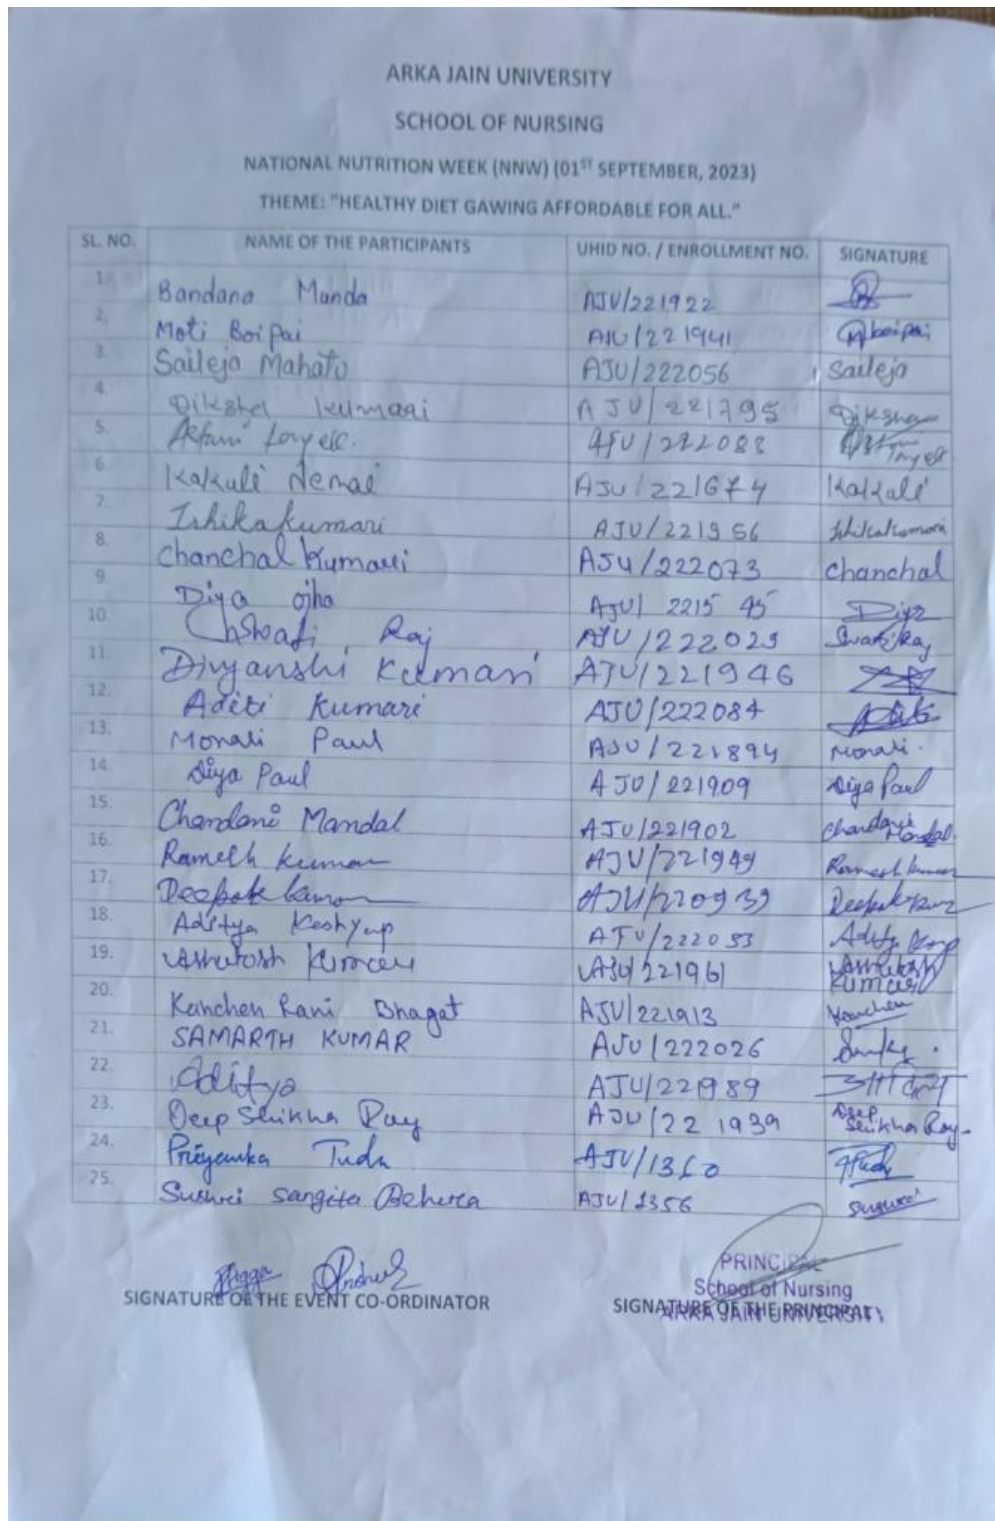 ARKA JAIN UNIVERSITY
SCHOOL OF NURSING
NATIONAL NUTRITION WEEK (NNW) (01ST SEPTEMBER, 2023)
THEME: "HEALTHY DIET GAWING AFFORDABLE FOR ALL."
SL. NO. NAME OF THE PARTICIPANTS UHID NO. / ENROLLMENT NO. SIGNATURE
1. Bandana Munda AJU/221922
2. Moti Boipai AJU/221941 Mboipai
3. Saileja Mahato AJU/222056 Saileja
4. Diksha kumari AJU/221795 Diksha
5. AJU/222088
6. Kakuli Nemai AJU/221674 Kakali
7. Ishika kumari AJU/221956 Ishikakumari
8. Chanchal Kumari AJU/222073 Chanchal
9. Diya ojha AJU/221545 Diya
10. Swati Raj AJU/222029 Swati Raj
11. Divyanshi Kumari AJU/221946
12. Aditi Kumari AJU/222084 Aditi
13. Monali Paul AJU/221894 Monali.
14. Diya Paul AJU/221909 Diya Paul
15. Chandani Mandal AJU/221902 Chandani Mandal
16. Ramesh kumar AJU/221949 Ramesh kumar
17. Deepak kumar AJU/220939 Deepak kumar
18. Aditya Kashyap AJU/222053 Aditya
19. Ashutosh Kumar AJU/221961 Ashutosh Kumar
20. Kanchan Rani Bhagat AJU/221913 Kanchan
21. SAMARTH KUMAR AJU/222026
22. Aditya AJU/221989 आदित्य
23. Deep Shikha Ray AJU/221939 Deep Shikha Ray
24. Priyanka Tudu AJU/1360
25. Sushri Sangita Behera AJU/1356 Sushri
PRINCIPAL
School of Nursing
ARKA JAIN UNIVERSITY
SIGNATURE OF THE EVENT CO-ORDINATOR SIGNATURE OF THE PRINCIPAL